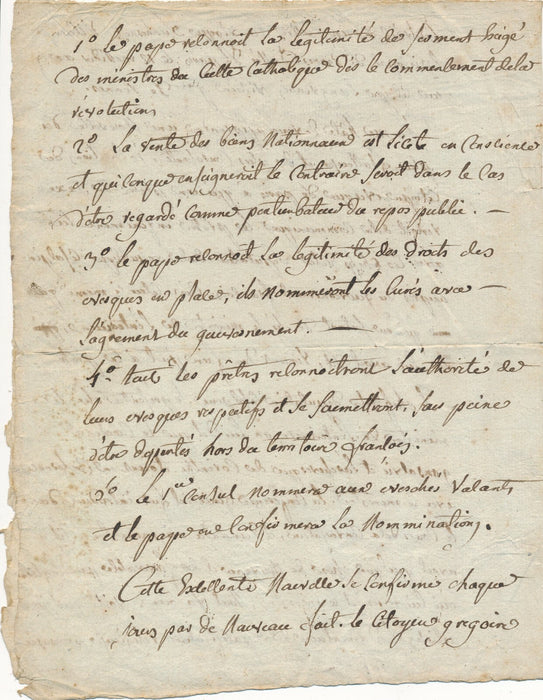 1° le pape reconnoit la legitimité de serment Exigé
des ministres du Culte Catholique dès le commencement de la
révolution,
2° La vente des biens Nationnaux est licite en Conscience
et quiconque enseigneroit le Contraire seroit dans le Cas
d'être regardé comme perturbateur du repos public. —
3° le pape reconnoit la legitimité des Droits des
evesques en place, ils nommeront les Curés avec —
l'agrément du gouvernement. —
4° tout les prêtres reconnoitront l'authorité de
leurs evesques respectifs et se soumettront, sous peine
d'être déportés hors du territoire françois.
5° Le 1er Consul Nommera aux evesches Vacants,
et le pape en Confirmera la Nommination.
Cette Excellente Nouvelle se Confirme chaque
jours par de Nouveau fait. le Citoyen gregoire